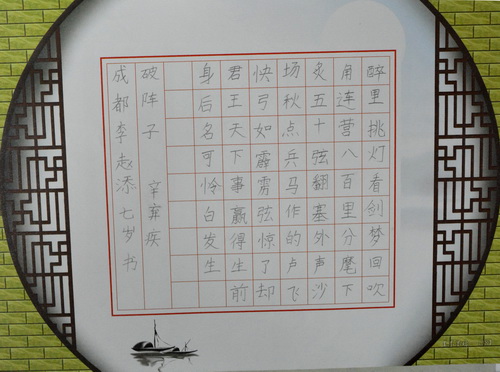 醉里挑灯看剑梦回吹
角连营八百里分麾下
炙五十弦翻塞外声沙
场秋点兵马作的卢飞
快弓如霹雳弦惊了却
君王天下事赢得生前
身后名可怜白发生
破阵子 辛弃疾
成都李赵添七岁书